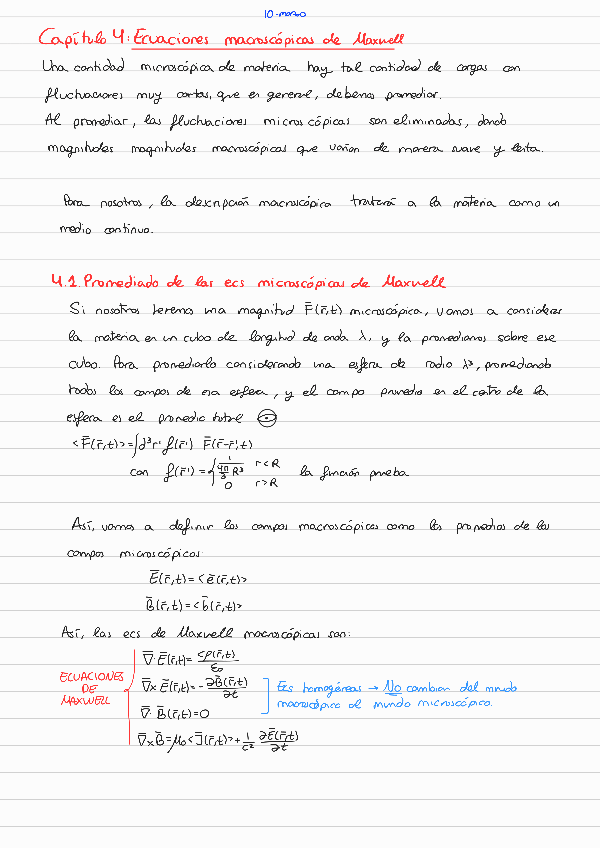 10-marzo
Capítulo 4: Ecuaciones macroscópicas de Maxwell
Una cantidad microscópica de materia hay tal cantidad de cargas con
fluctuaciones muy cortas, que en general, debemos promediar.
Al promediar, las fluctuaciones microscópicas son eliminadas, dando
magnitudes magnitudes macroscópicas que varían de manera suave y lenta.
Para nosotros, la descripción macroscópica tratará a la materia como un
medio continuo.
4.1. Promediado de las ecs microscópicas de Maxwell
Si nosotros tenemos una magnitud F̄(r̄,t) microscópica, vamos a considerar
la materia en un cubo de longitud de onda λ, y la promediamos sobre ese
cubo. Para promediarlo considerando una esfera de radio λ³, promediando
todos los campos de esa esfera, y el campo promedio en el centro de la
esfera es el promedio total
<F̄(r̄,t)>=∫d³r' f(r̄') F̄(r̄-r̄',t)
con f(r̄')={ 1/(4π/3 R³) r<R
0 r>R la función prueba
Así, vamos a definir los campos macroscópicos como los promedios de los
campos microscópicos
Ē(r̄,t)=<ē(r̄,t)>
B̄(r̄,t)=<b̄(r̄,t)>
Así, las ecs de Maxwell macroscópicas son:
ECUACIONES DE MAXWELL
∇̄·Ē(r̄,t)=<ρ(r̄,t)>/ε₀
∇̄×Ē(r̄,t)=-∂B̄(r̄,t)/∂t
∇̄·B̄(r̄,t)=0
Ecs homogéneas → No cambian del mundo
macroscópico al mundo microscópico.
∇̄×B̄=μ₀<J̄(r̄,t)>+1/c² ∂Ē(r̄,t)/∂t